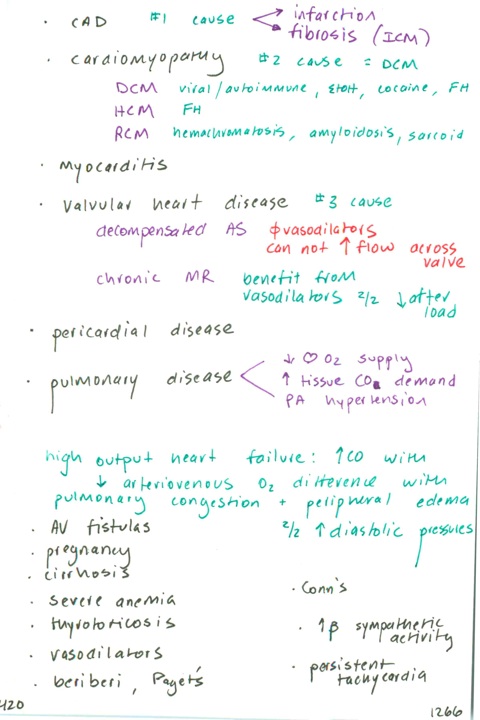 · CAD #1 cause → infarction
→ fibrosis (ICM)
· cardiomyopathy #2 cause = DCM
DCM viral/autoimmune, EtOH, cocaine, FH
HCM FH
RCM hemachromatosis, amyloidosis, sarcoid
· myocarditis
· valvular heart disease #3 cause
decompensated AS φvasodilators
can not ↑ flow across
valve
chronic MR benefit from
vasodilators 2/2 ↓ after
load
· pericardial disease
↓ ♡ O2 supply
· pulmonary disease ↑ tissue CO demand
PA hypertension
high output heart failure: ↑CO with
↓ arteriovenous O2 difference with
pulmonary congestion + peripheral edema
2/2 ↑ diastolic pressures
· AV fistulas
· pregnancy
· cirrhosis
· severe anemia
· thyrotoxicosis
· vasodilators
· beriberi, Paget's
· Conn's
· ↑β sympathetic
activity
· persistent
tachycardia
420
1266